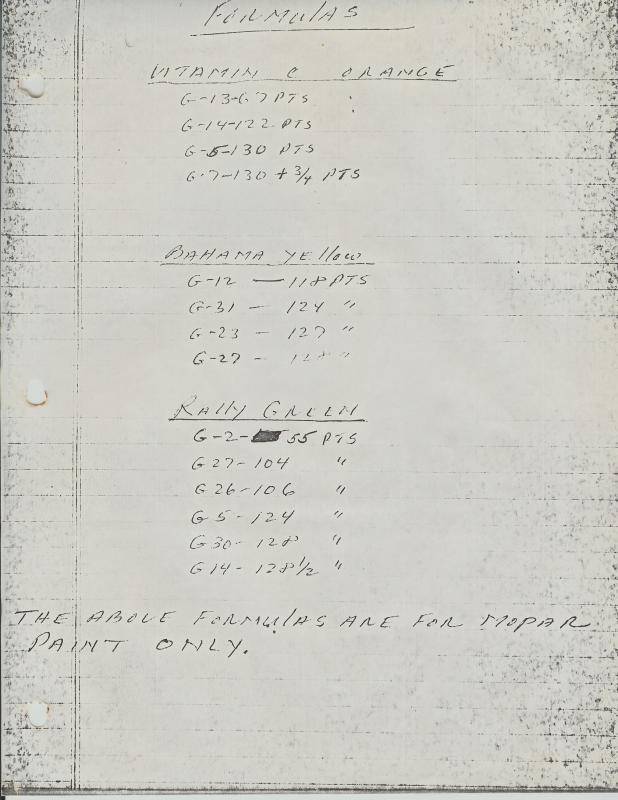 FORMULAS
VITAMIN C ORANGE
G-13-67 PTS
G-14-122 PTS
G-5-130 PTS
G-7-130 + 3/4 PTS
BAHAMA YELLOW
G-12 — 118 PTS
G-31 - 124 "
G-23 - 127 "
G-27 - 128 "
RALLY GREEN
G-2- 55 PTS
G 27-104 "
G 26-106 "
G 5-124 "
G 30-128 "
G 14-128 1/2 "
THE ABOVE FORMULAS ARE FOR MOPAR
PAINT ONLY.